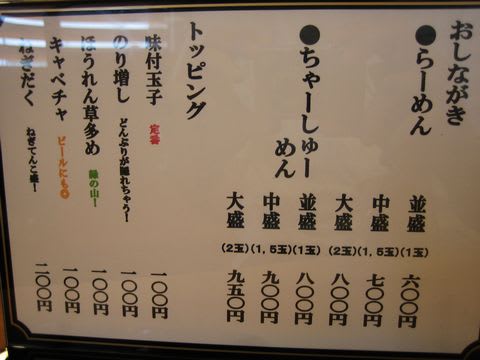 おしながき
●らーめん
並盛(1玉)六〇〇円
中盛(1,5玉)七〇〇円
大盛(2玉)八〇〇円
●ちゃーしゅーめん
並盛(1玉)八〇〇円
中盛(1,5玉)九〇〇円
大盛(2玉)九五〇円
トッピング
味付玉子 定番 一〇〇円
のり増し どんぶりが隠れちゃう! 一〇〇円
ほうれん草多め 緑の山! 一〇〇円
キャベチャ ビールにも◎ 一〇〇円
ねぎだく ねぎてんこ盛! 二〇〇円